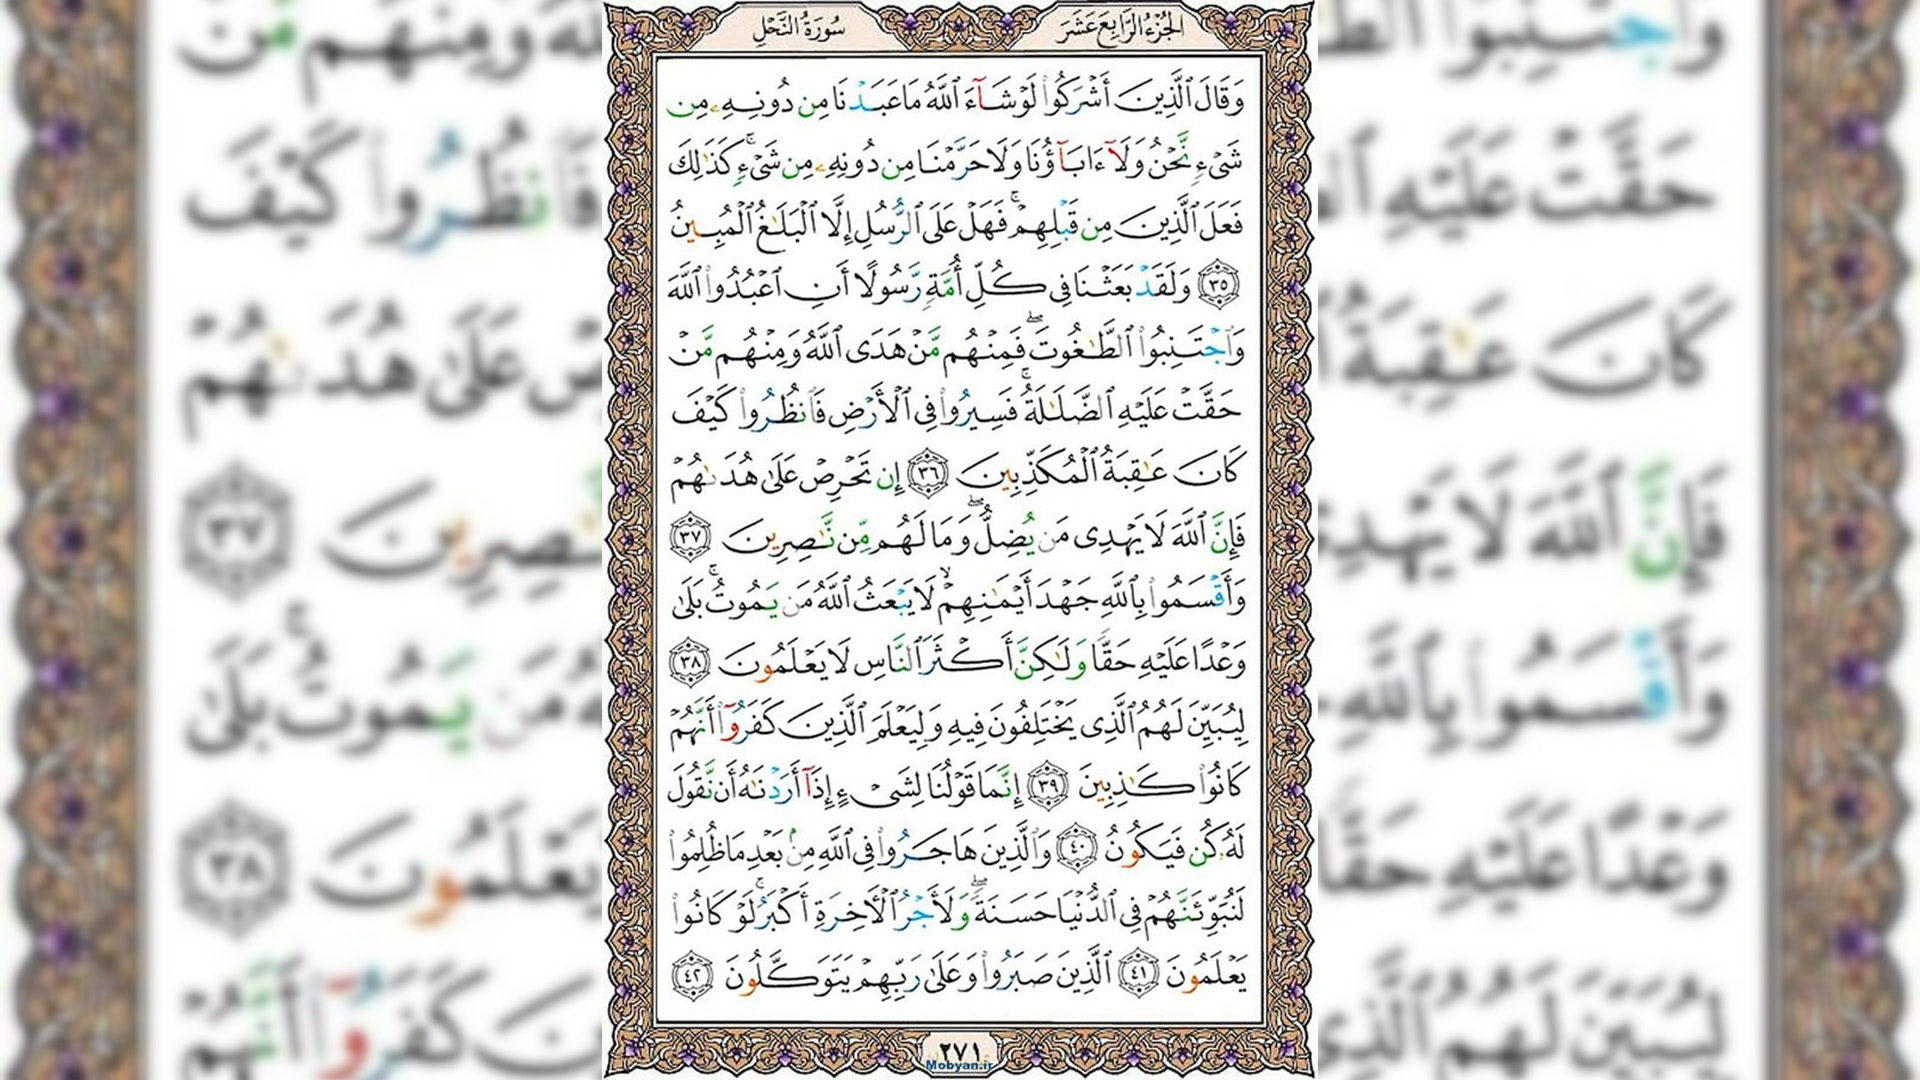 الجُزْءُ الرَّابِعَ عَشَرَ
سُورَةُ النَّحْلِ
وَقَالَ ٱلَّذِينَ أَشْرَكُوا۟ لَوْ شَآءَ ٱللَّهُ مَا عَبَدْنَا مِن دُونِهِۦ مِن
شَىْءٍ نَّحْنُ وَلَآ ءَابَآؤُنَا وَلَا حَرَّمْنَا مِن دُونِهِۦ مِن شَىْءٍ ۚ كَذَٰلِكَ
فَعَلَ ٱلَّذِينَ مِن قَبْلِهِمْ ۚ فَهَلْ عَلَى ٱلرُّسُلِ إِلَّا ٱلْبَلَـٰغُ ٱلْمُبِينُ
٣٥ وَلَقَدْ بَعَثْنَا فِى كُلِّ أُمَّةٍ رَّسُولًا أَنِ ٱعْبُدُوا۟ ٱللَّهَ
وَٱجْتَنِبُوا۟ ٱلطَّـٰغُوتَ ۖ فَمِنْهُم مَّنْ هَدَى ٱللَّهُ وَمِنْهُم مَّنْ
حَقَّتْ عَلَيْهِ ٱلضَّلَـٰلَةُ ۚ فَسِيرُوا۟ فِى ٱلْأَرْضِ فَٱنظُرُوا۟ كَيْفَ
كَانَ عَـٰقِبَةُ ٱلْمُكَذِّبِينَ ٣٦ إِن تَحْرِصْ عَلَىٰ هُدَىٰهُمْ
فَإِنَّ ٱللَّهَ لَا يَهْدِى مَن يُضِلُّ ۖ وَمَا لَهُم مِّن نَّـٰصِرِينَ ٣٧
وَأَقْسَمُوا۟ بِٱللَّهِ جَهْدَ أَيْمَـٰنِهِمْ ۙ لَا يَبْعَثُ ٱللَّهُ مَن يَمُوتُ ۚ بَلَىٰ
وَعْدًا عَلَيْهِ حَقًّا وَلَـٰكِنَّ أَكْثَرَ ٱلنَّاسِ لَا يَعْلَمُونَ ٣٨
لِيُبَيِّنَ لَهُمُ ٱلَّذِى يَخْتَلِفُونَ فِيهِ وَلِيَعْلَمَ ٱلَّذِينَ كَفَرُوٓا۟ أَنَّهُمْ
كَانُوا۟ كَـٰذِبِينَ ٣٩ إِنَّمَا قَوْلُنَا لِشَىْءٍ إِذَآ أَرَدْنَـٰهُ أَن نَّقُولَ
لَهُۥ كُن فَيَكُونُ ٤٠ وَٱلَّذِينَ هَاجَرُوا۟ فِى ٱللَّهِ مِنۢ بَعْدِ مَا ظُلِمُوا۟
لَنُبَوِّئَنَّهُمْ فِى ٱلدُّنْيَا حَسَنَةً ۖ وَلَأَجْرُ ٱلْـَٔاخِرَةِ أَكْبَرُ ۚ لَوْ كَانُوا۟
يَعْلَمُونَ ٤١ ٱلَّذِينَ صَبَرُوا۟ وَعَلَىٰ رَبِّهِمْ يَتَوَكَّلُونَ ٤٢
٢٧١
Mobyan.ir